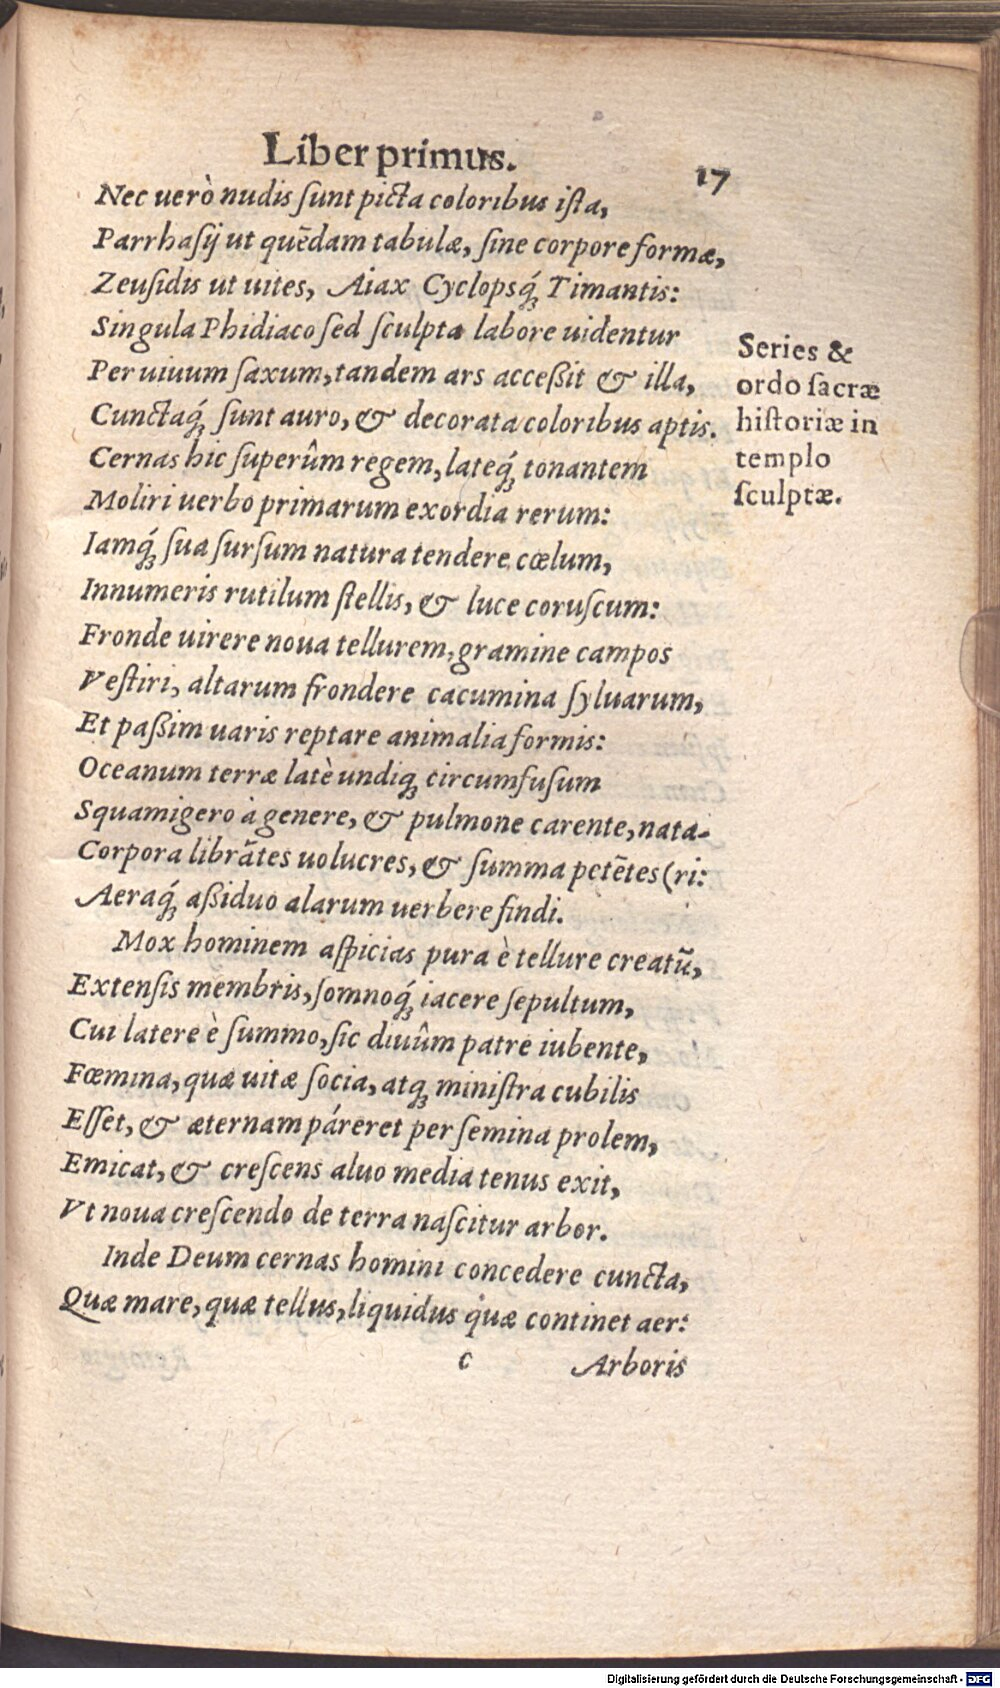 Liber primus.
17
Nec uerò nudis ſunt picta coloribus iſta,
Parrhaſij ut quēdam tabulæ, ſine corpore formæ,
Zeuſidis ut uites, Aiax Cyclopsq́; Timantis:
Singula Phidiaco ſed ſculpta labore uidentur
Per uiuum ſaxum, tandem ars acceßit & illa,
Cunctaq́; ſunt auro, & decorata coloribus aptis.
Cernas hic ſuperûm regem, lateq́; tonantem
Moliri uerbo primarum exordia rerum:
Iamq́; ſua ſurſum natura tendere cœlum,
Innumeris rutilum ſtellis, & luce coruſcum:
Fronde uirere noua tellurem, gramine campos
Veſtiri, altarum frondere cacumina ſyluarum,
Et paßim uaris reptare animalia formis:
Oceanum terræ latè undiq; circumfuſum
Squamigero à genere, & pulmone carente, nata-
Corpora librātes uolucres, & ſumma petētes (ri:
Aeraq́; aßiduo alarum uerbere findi.
Mox hominem aſpicias pura è tellure creatū,
Extenſis membris, ſomnoq́; iacere ſepultum,
Cui latere è ſummo, ſic diuûm patre iubente,
Fœmina, quæ uitæ ſocia, atq; miniſtra cubilis
Eſſet, & æternam páreret per ſemina prolem,
Emicat, & creſcens aluo media tenus exit,
Vt noua creſcendo de terra naſcitur arbor.
Inde Deum cernas homini concedere cuncta,
Quæ mare, quæ tellus, liquidus quæ continet aer:
c Arboris
Series &
ordo ſacræ
hiſtoriæ in
templo
ſculptæ.
Digitalisierung gefördert durch die Deutsche Forschungsgemeinschaft - DFG